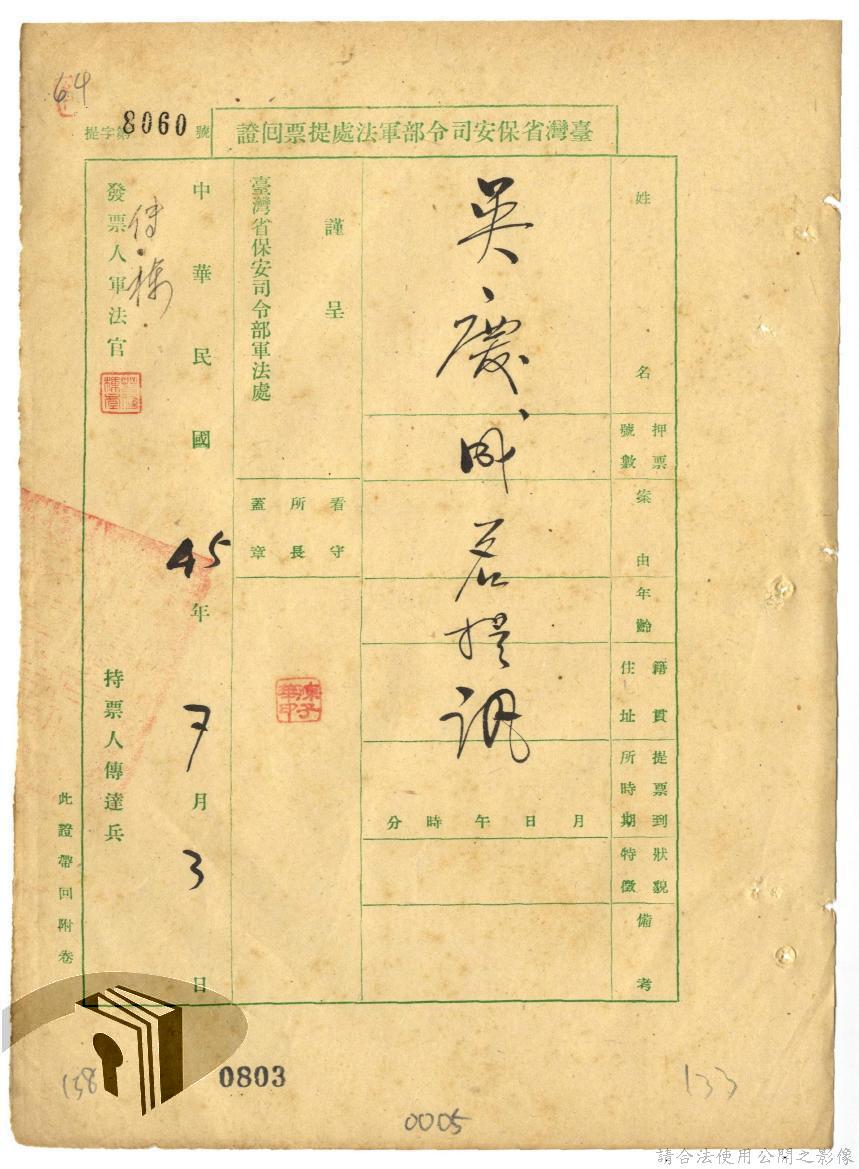 64
臺灣省保安司令部軍法處提票回證
提字第8060號
姓名
吳慶成君提訊
押票號數
案由
年齡
籍貫住址
提票到所時期
月 日 午 時 分
狀貌特徵
備考
謹呈
臺灣省保安司令部軍法處
看守所長蓋章
中華民國45年7月3日
發票人軍法官
持票人傳達兵
此證帶回附卷
138
0803
133
0005
請合法使用公開之影像